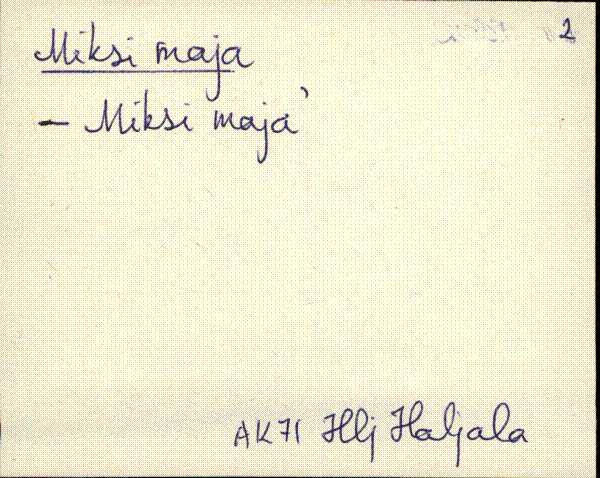 2
Miksi maja
– Miksi maja'
AK71 Hlj Haljala